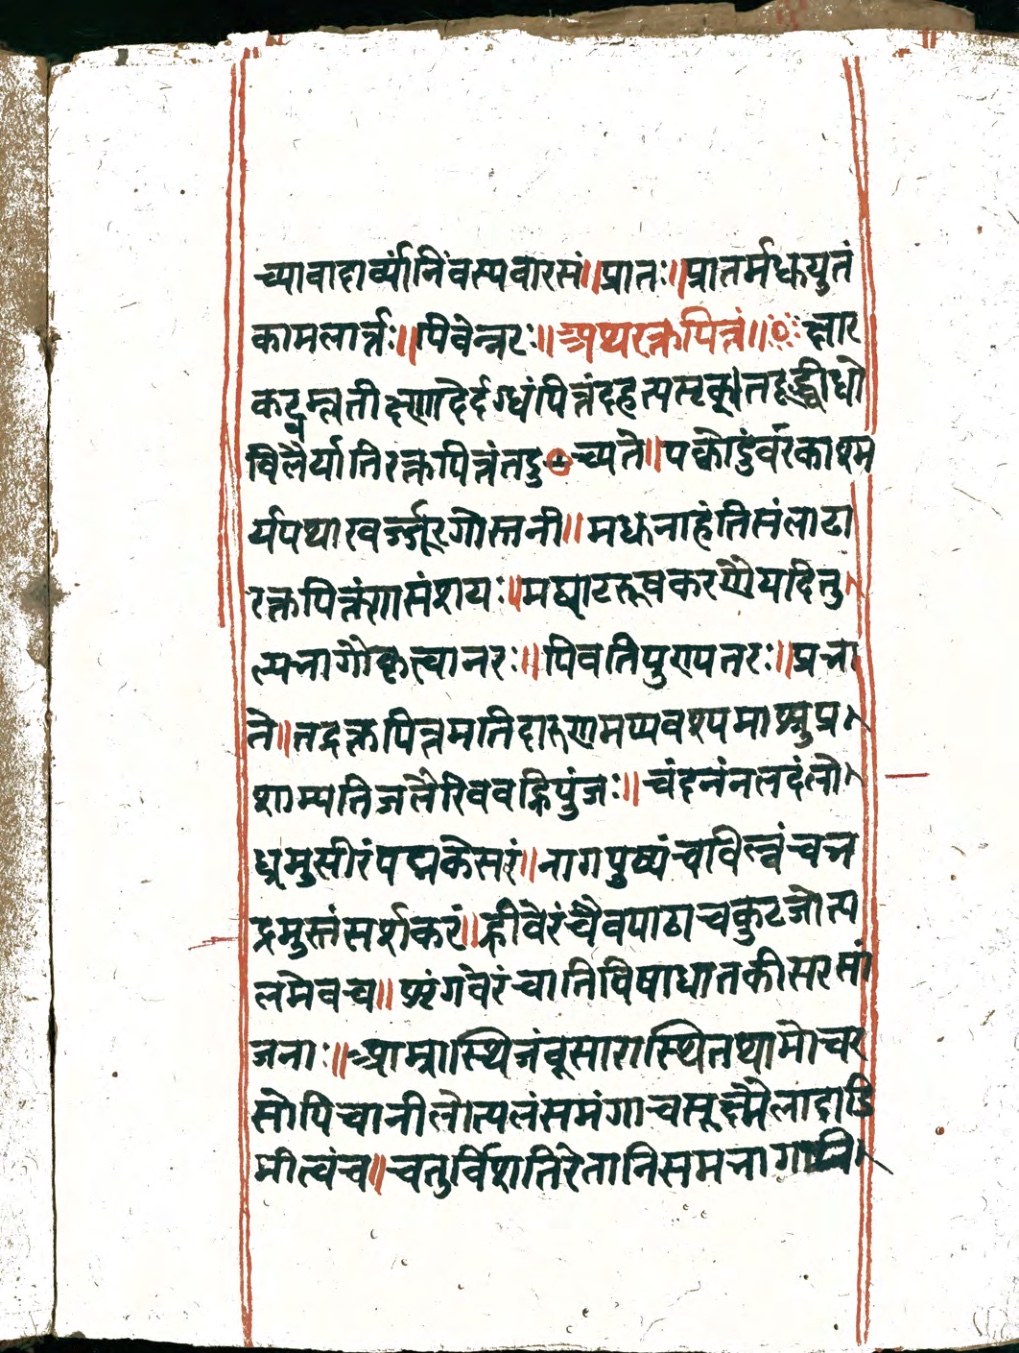 च्यावादार्व्यांनिंवस्यवारसं॥प्रातः॥प्रातर्मधुयुतं
कामलार्त्तः॥पिवेन्नरः॥अथरक्तपित्तं॥क्षार
कट्वम्लतीक्ष्णादेर्दग्धंपित्तंदहत्यसृक्॥तदूर्द्ध्वाधो
विलैर्यातिरक्तपित्तंतदुच्यते॥पक्वोडुंवरकाश्म
र्यपथ्याखर्ज्जूरगोस्तनी॥मधुनाहंतिसंलाढा
रक्तपित्तंणसंशयः॥मध्वाटरूषकरसौयदितु
ल्यभागौकृत्वानरः॥पिवतिपुण्यतरः॥प्रभा
ते॥तद्रक्तपित्तमतिदारुणमप्यवश्यमाशुप्र
शाम्यतिजलैरिववह्निपुंजः॥चंदनंनलदंलो
ध्रमुसीरंपद्मकेसरं॥नागपुष्यंचविल्वंचभ
द्रमुस्तंसर्शकरं॥ह्रीवेरंचैवपाठाचकुटजोत्प
लमेवच॥शृंगवेरंचातिविषाधातकीसरसां
जनाः॥आम्रास्थिजंवूसारास्थितथामोचर
सोपिचानीलोत्पलंसमंगाचसूक्ष्मैलादाडि
मीत्वंच॥चतुर्विंशतिरेतानिसमभागानि